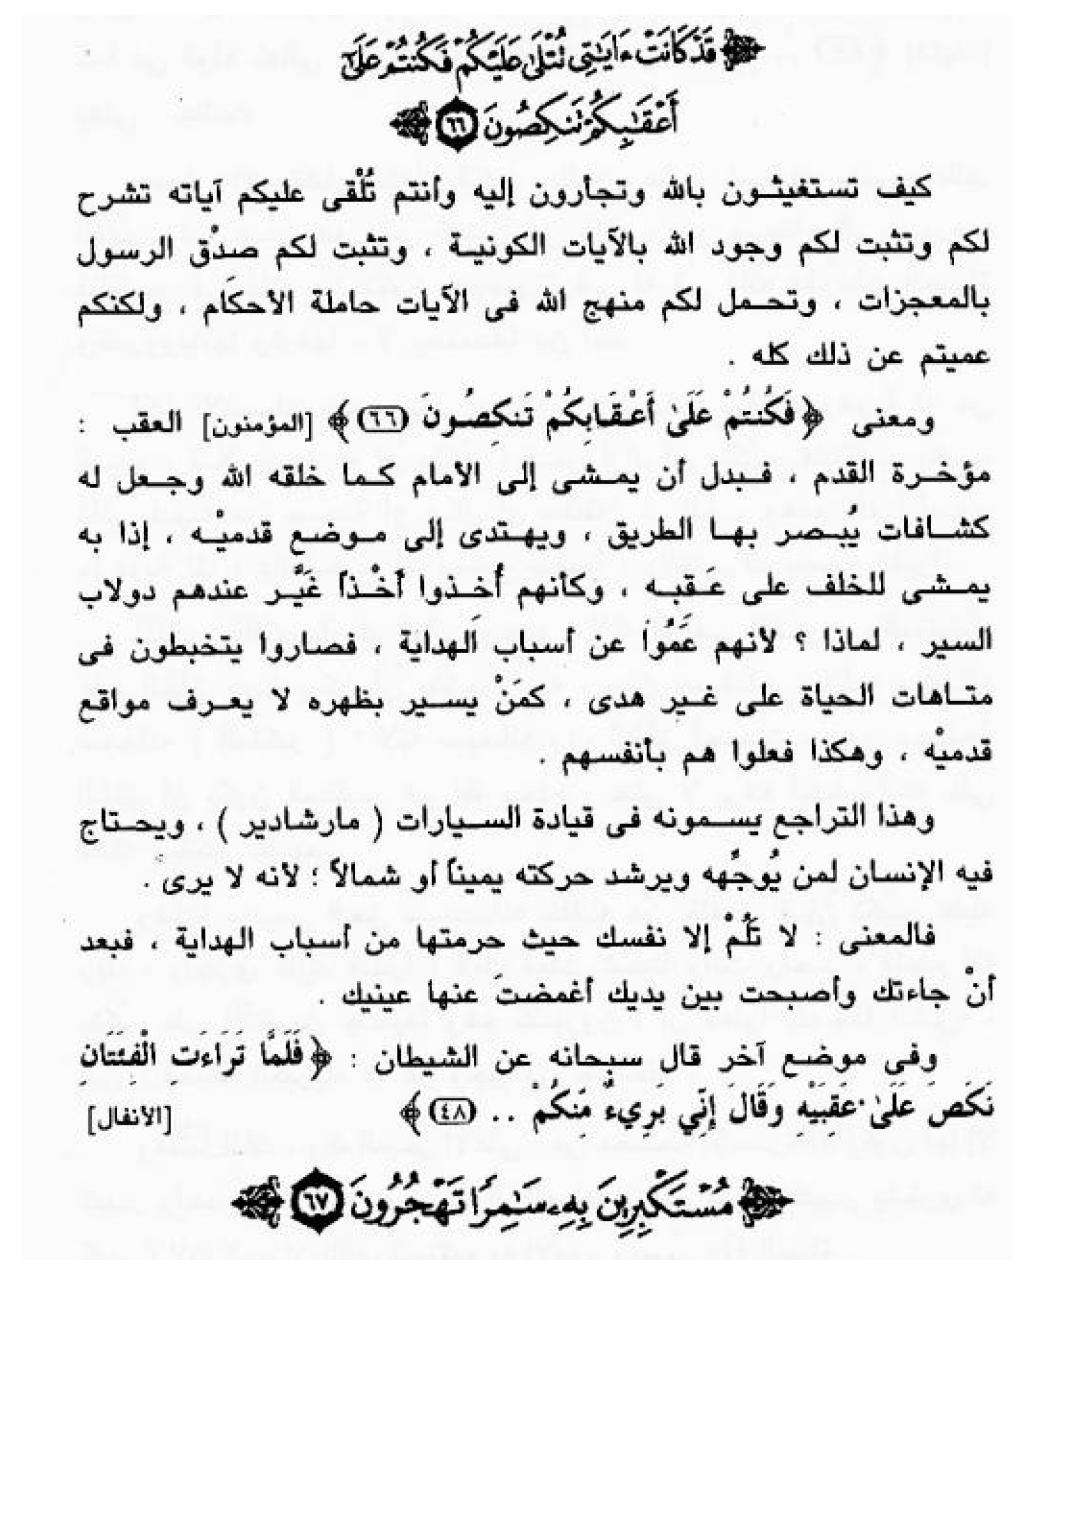 ﴿ قَدْ كَانَتْ ءَايَٰتِى تُتْلَىٰ عَلَيْكُمْ فَكُنتُمْ عَلَىٰٓ
أَعْقَٰبِكُمْ تَنكِصُونَ ٦٦ ﴾
كيف تستغيثون بالله وتجأرون إليه وأنتم تُلْقى عليكم آياته تشرح
لكم وتثبت لكم وجود الله بالآيات الكونية ، وتثبت لكم صدْق الرسول
بالمعجزات ، وتحمل لكم منهج الله فى الآيات حاملة الأحكام ، ولكنكم
عميتم عن ذلك كله .
ومعنى ﴿ فَكُنتُمْ عَلَىٰ أَعْقَابِكُمْ تَنكِصُونَ (٦٦) ﴾ [المؤمنون] العقب :
مؤخرة القدم ، فبدل أن يمشى إلى الأمام كما خلقه الله وجعل له
كشافات يُبصر بها الطريق ، ويهتدى إلى موضع قدميْه ، إذا به
يمشى للخلف على عَقبه ، وكأنهم أُخذوا أخْذاً غَيَّر عندهم دولاب
السير ، لماذا ؟ لأنهم عَمُوا عن أسباب الهداية ، فصاروا يتخبطون فى
متاهات الحياة على غير هدى ، كمَنْ يسير بظهره لا يعرف مواقع
قدميْه ، وهكذا فعلوا هم بأنفسهم .
وهذا التراجع يسمونه فى قيادة السيارات ( مارشادير ) ، ويحتاج
فيه الإنسان لمن يُوجِّهه ويرشد حركته يميناً أو شمالاً ؛ لأنه لا يرى .
فالمعنى : لا تَلُمْ إلا نفسك حيث حرمتها من أسباب الهداية ، فبعد
أنْ جاءتك وأصبحت بين يديك أغمضتَ عنها عينيك .
وفى موضع آخر قال سبحانه عن الشيطان : ﴿ فَلَمَّا تَرَاءَتِ الْفِئَتَانِ
نَكَصَ عَلَىٰ عَقِبَيْهِ وَقَالَ إِنِّي بَرِيءٌ مِّنكُمْ .. (٤٨) ﴾ [الأنفال]
﴿ مُسْتَكْبِرِينَ بِهِۦ سَٰمِرًا تَهْجُرُونَ ٦٧ ﴾